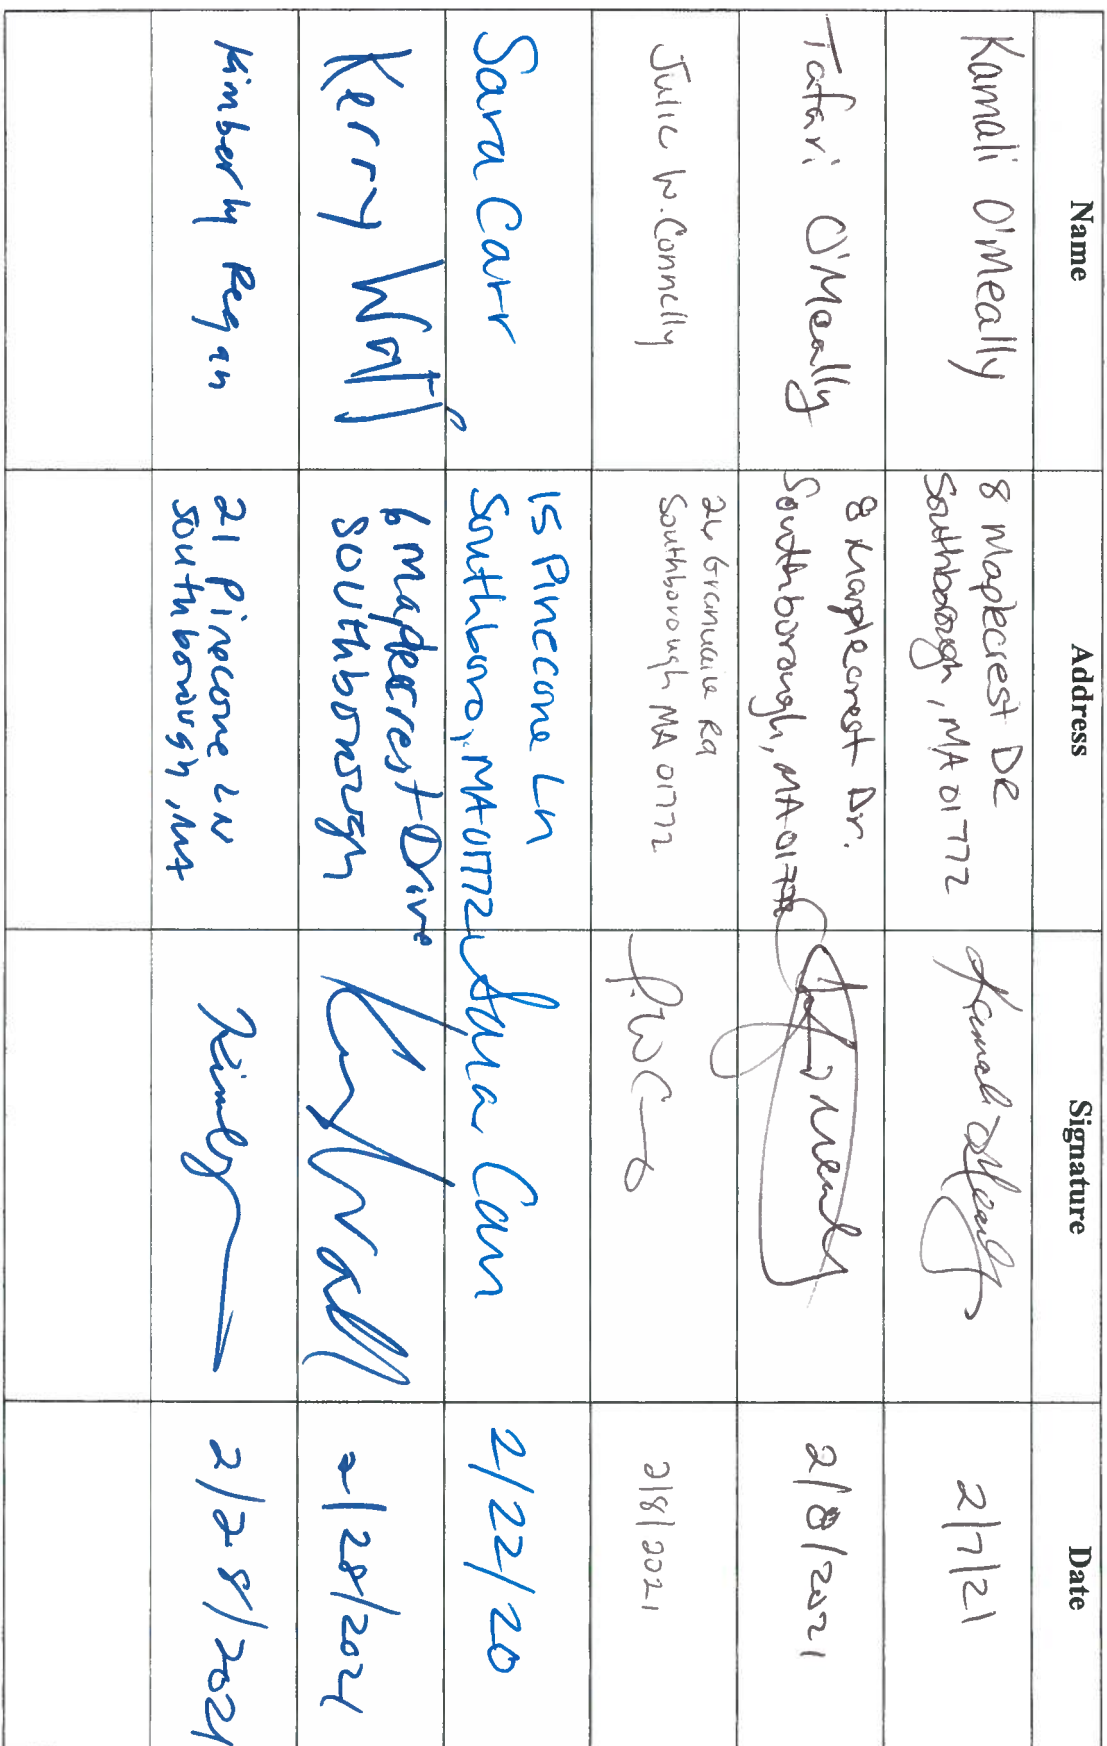 Name Address Signature Date
Kamali O'Meally
8 Maplecrest DR
Southborough, MA 01772
Kamali O'Meally
2/7/21
Tafari O'Meally
8 Maplecrest Dr.
Southborough, MA 01772
2/8/2021
Julie W. Connelly
26 Granuaile Rd
Southborough MA 01772
JWC
2/8/2021
Sara Carr
15 Pinecone Ln
Southboro, MA 01772
Sara Carr
2/22/20
Kerry
6 Maplecrest Drive
Southborough
2/28/2021
Kimberly Regan
21 Pinecone LN
Southborough, MA
2/28/2021